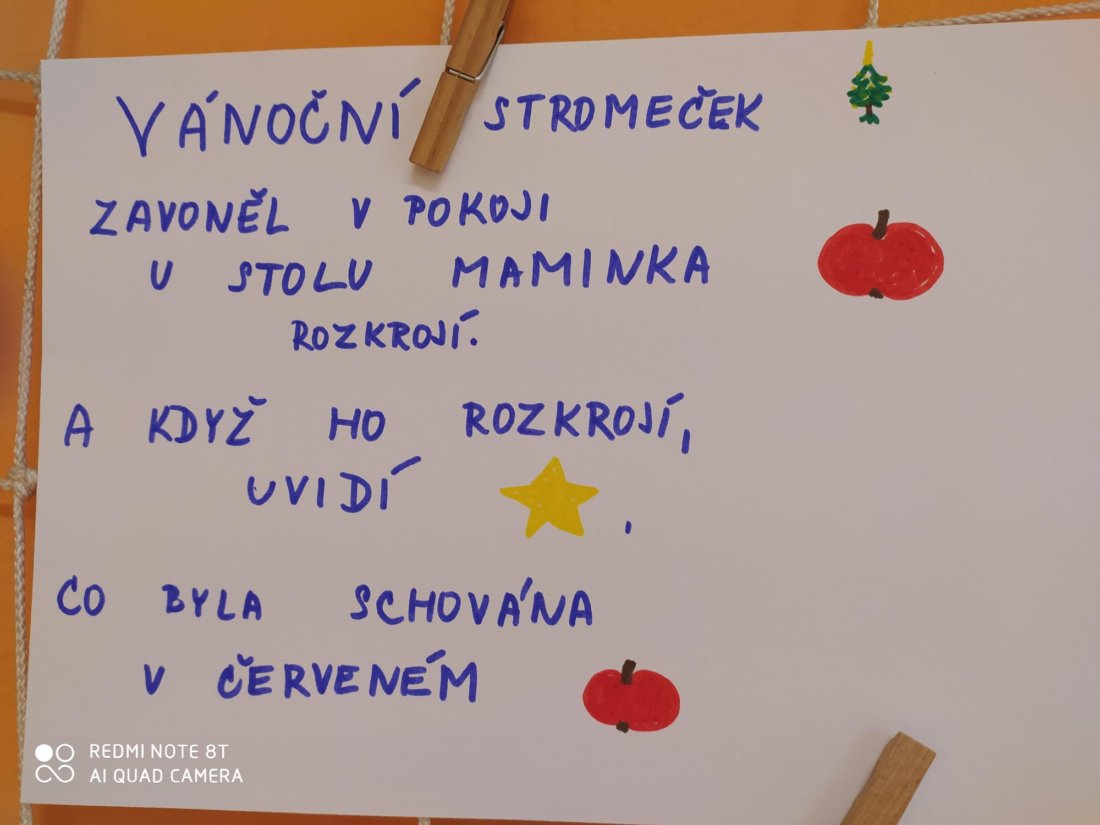 VÁNOČNÍ STROMEČEK
ZAVONĚL V POKOJI
U STOLU MAMINKA
ROZKROJÍ.
A KDYŽ HO ROZKROJÍ,
UVIDÍ ,
CO BYLA SCHOVÁNA
V ČERVENÉM
REDMI NOTE 8T
AI QUAD CAMERA